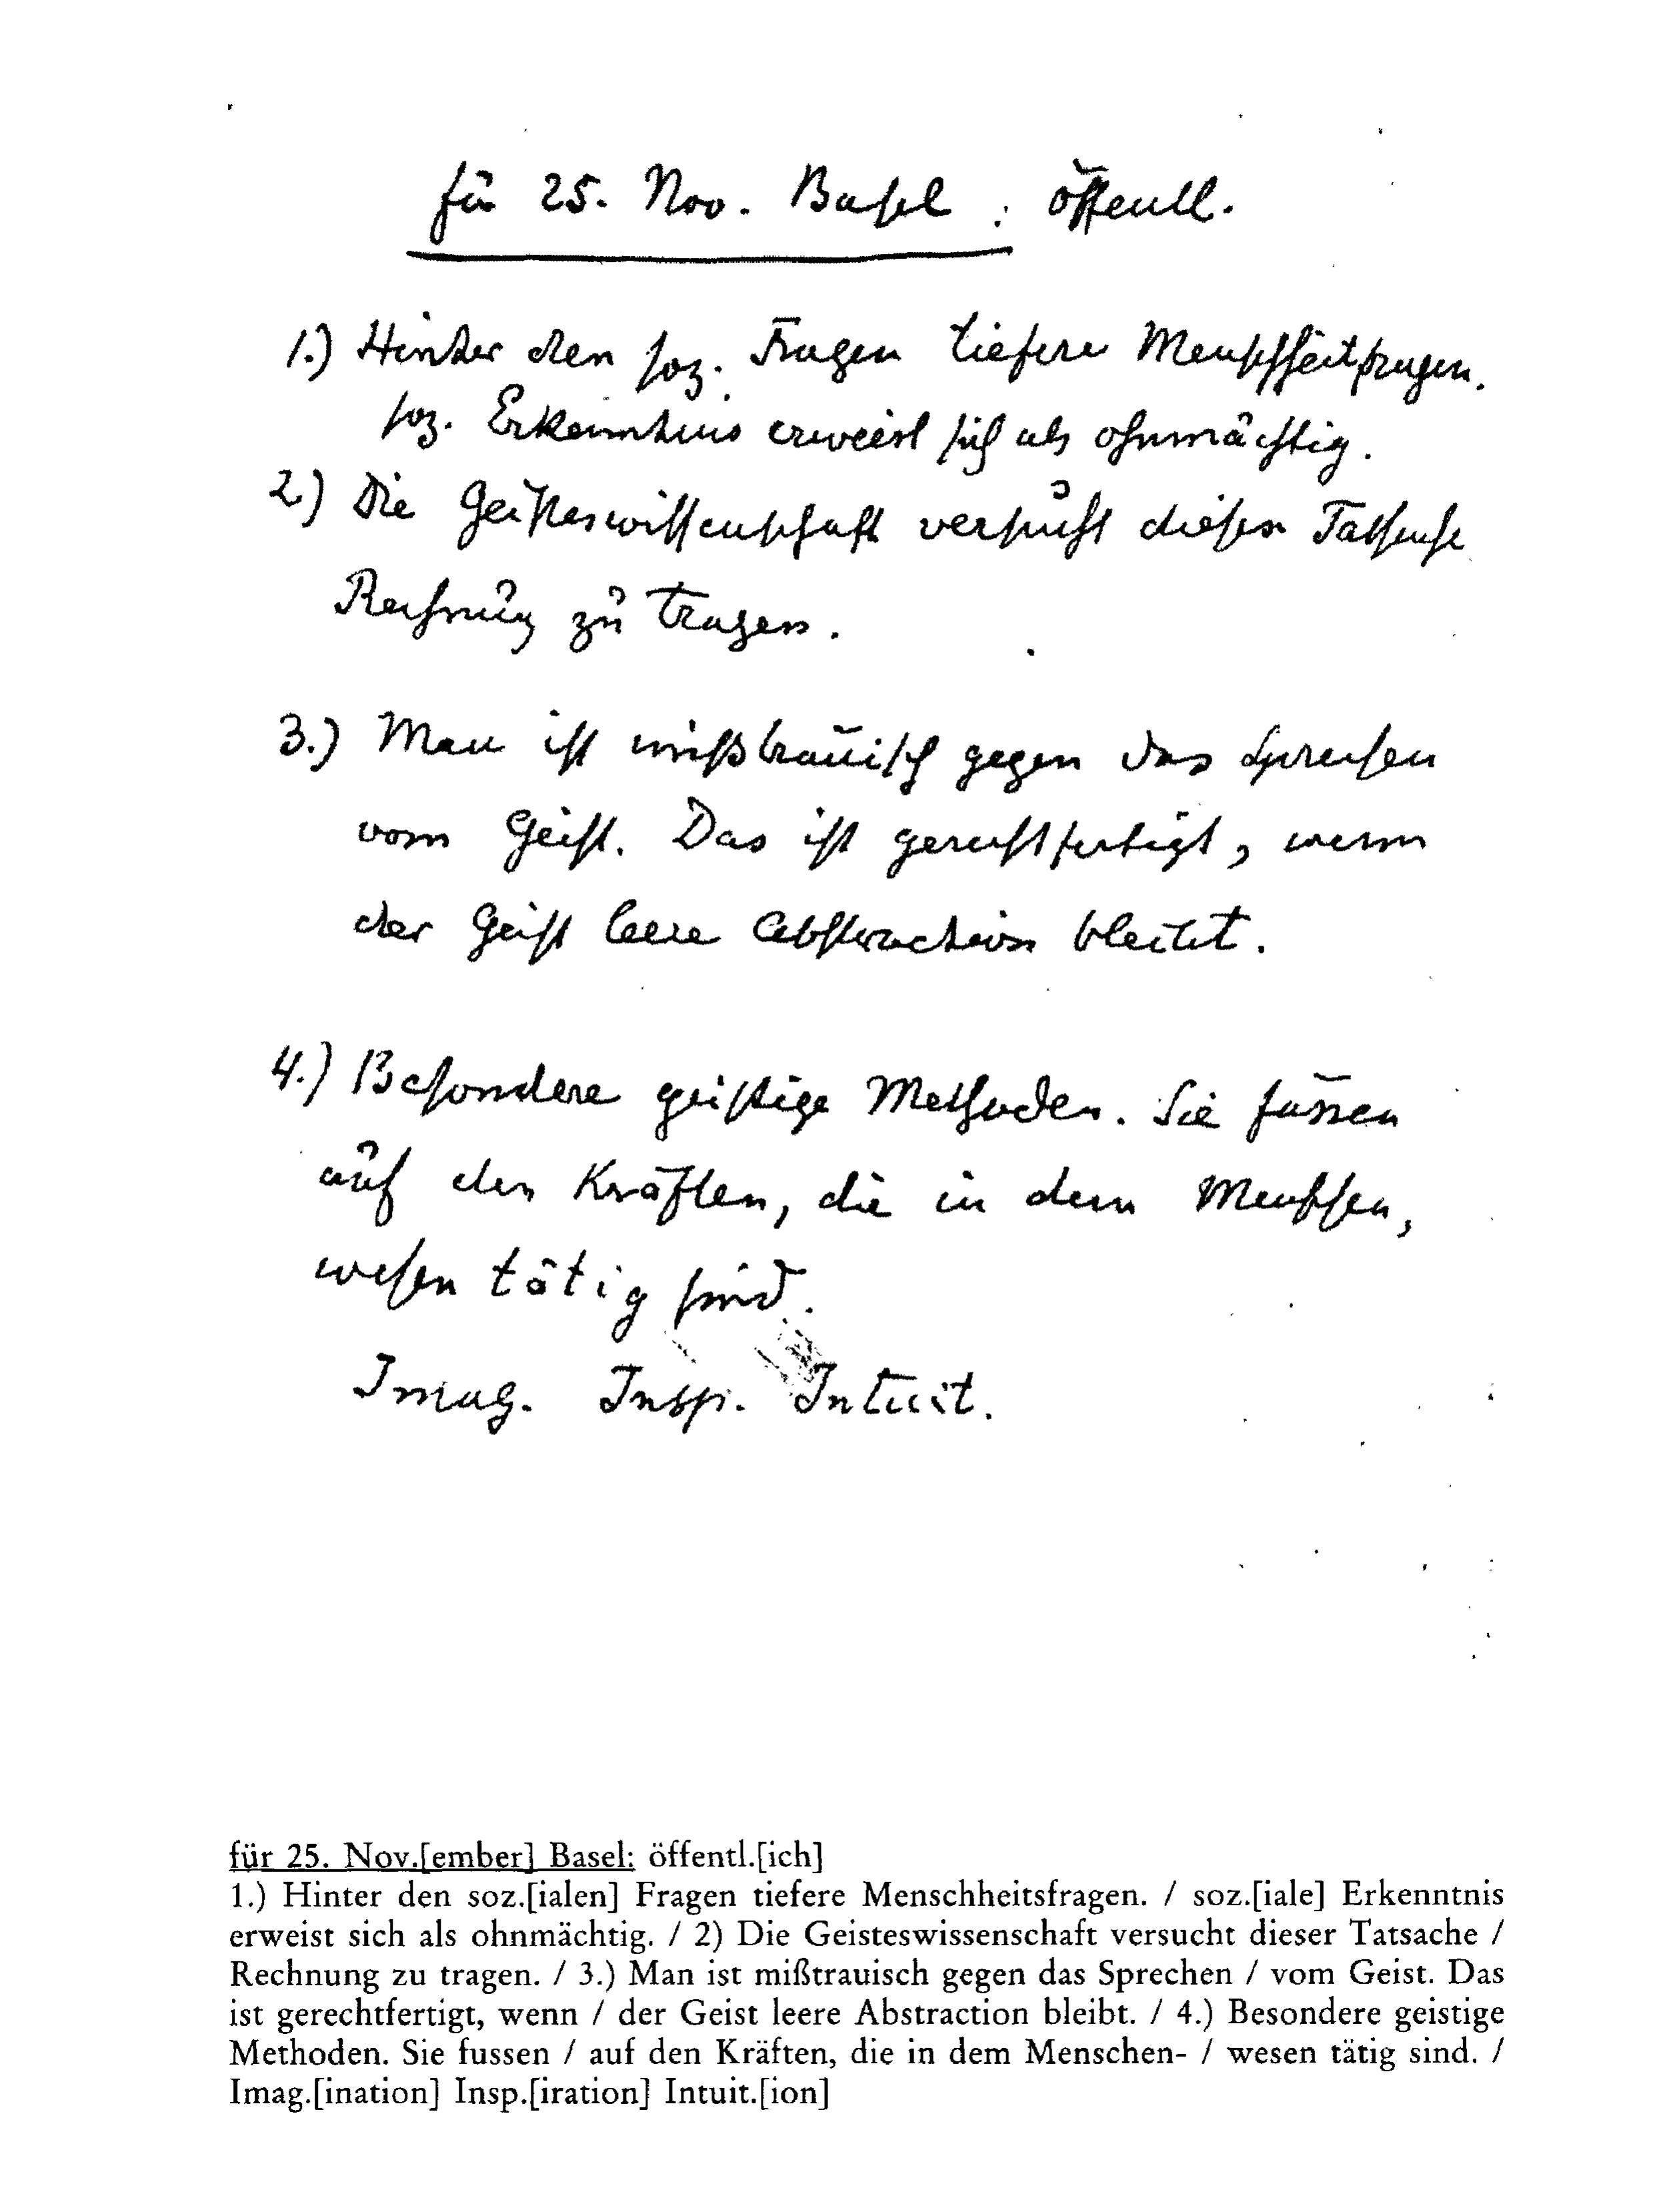 für 25. Nov. Basel: öffentl.
1.) Hinter den soz. Fragen tiefere Menschheitsfragen.
soz. Erkenntnis erweist sich als ohnmächtig.
2.) Die Geisteswissenschaft versucht dieser Tatsache
Rechnung zu tragen.
3.) Man ist mißtrauisch gegen das Sprechen
vom Geist. Das ist gerechtfertigt, wenn
der Geist leere Abstraction bleibt.
4.) Besondere geistige Methoden. Sie fussen
auf den Kräften, die in dem Menschen,
wesen tätig sind.
Imag. Insp. Intuit.
für 25. Nov.[ember] Basel: öffentl.[ich]
1.) Hinter den soz.[ialen] Fragen tiefere Menschheitsfragen. / soz.[iale] Erkenntnis
erweist sich als ohnmächtig. / 2) Die Geisteswissenschaft versucht dieser Tatsache /
Rechnung zu tragen. / 3.) Man ist mißtrauisch gegen das Sprechen / vom Geist. Das
ist gerechtfertigt, wenn / der Geist leere Abstraction bleibt. / 4.) Besondere geistige
Methoden. Sie fussen / auf den Kräften, die in dem Menschen- / wesen tätig sind. /
Imag.[ination] Insp.[iration] Intuit.[ion]